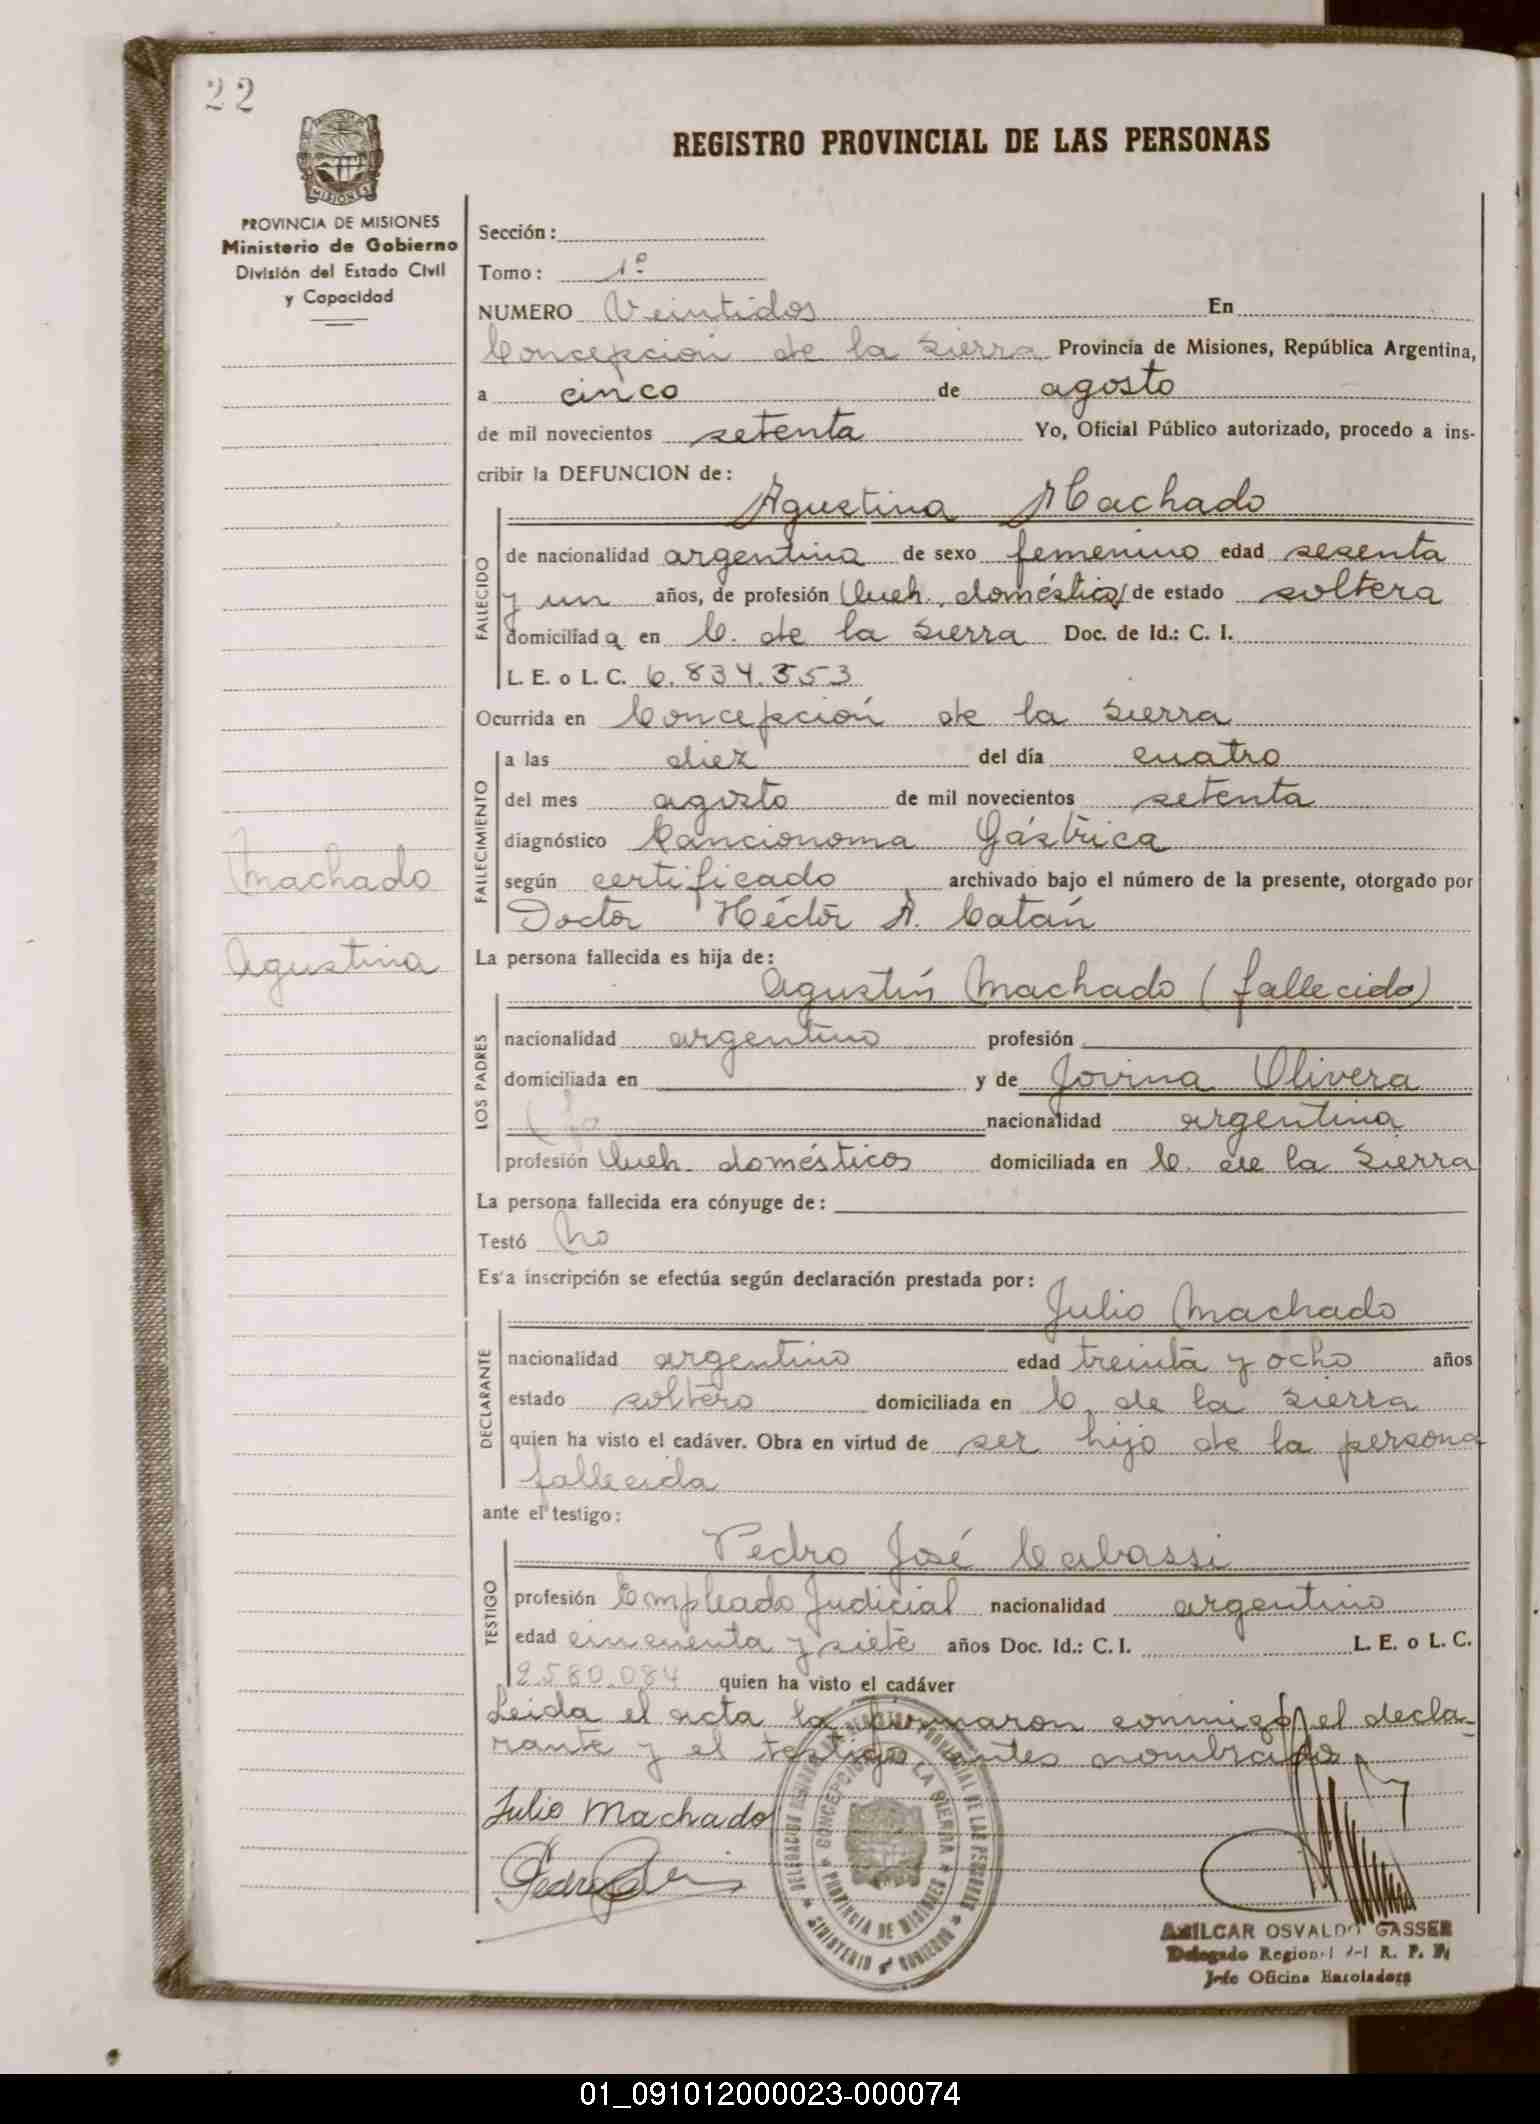 22
REGISTRO PROVINCIAL DE LAS PERSONAS
MISIONES
PROVINCIA DE MISIONES
Ministerio de Gobierno
División del Estado Civil
y Capacidad
Sección:
Tomo: 1º
NUMERO Veintidos En
Concepción de la Sierra Provincia de Misiones, República Argentina,
a cinco de agosto
de mil novecientos setenta Yo, Oficial Público autorizado, procedo a ins-
cribir la DEFUNCION de:
Agustina Machado
FALLECIDO
de nacionalidad argentina de sexo femenino edad sesenta
y un años, de profesión Queh. doméstico de estado soltera
domiciliada en C. de la Sierra Doc. de Id.: C. I.
L. E. o L. C. 6.834.353
Ocurrida en Concepción de la Sierra
FALLECIMIENTO
a las diez del día cuatro
del mes agosto de mil novecientos setenta
diagnóstico Cancionoma Gástrica
según certificado archivado bajo el número de la presente, otorgado por
Doctor Héctor A. Catán
Machado
Agustina
La persona fallecida es hija de:
Agustín Machado (fallecido)
LOS PADRES
nacionalidad argentino profesión
domiciliada en y de Jovina Olivera
nacionalidad argentina
profesión Queh. domésticos domiciliada en C. de la Sierra
La persona fallecida era cónyuge de:
Testó No
Es'a inscripción se efectúa según declaración prestada por:
Julio Machado
DECLARANTE
nacionalidad argentino edad treinta y ocho años
estado soltero domiciliada en C. de la Sierra
quien ha visto el cadáver. Obra en virtud de ser hijo de la persona
fallecida
ante el testigo:
Pedro José Cabassi
TESTIGO
profesión Empleado Judicial nacionalidad argentino
edad cincuenta y siete años Doc. Id.: C. I. L. E. o L. C.
2.580.084 quien ha visto el cadáver
Leida el acta la firmaron conmigo, el decla-
rante y el testigo antes nombrados.
Julio Machado
CONCEPCION DE LA SIERRA
PROVINCIA DE MISIONES
MINISTERIO DE GOBIERNO
AMILCAR OSVALDO GASSER
Delegado Regional del R. P. P.
Jefe Oficina Enroladora
01_091012000023-000074